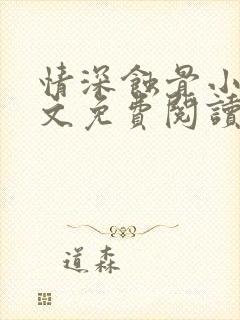 情深蝕骨小
文免費閱讀
道森